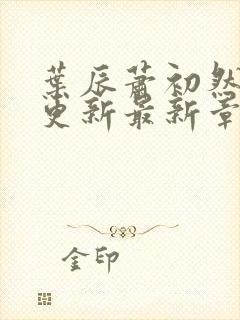 葉辰蕭初然
更新最新章
金印